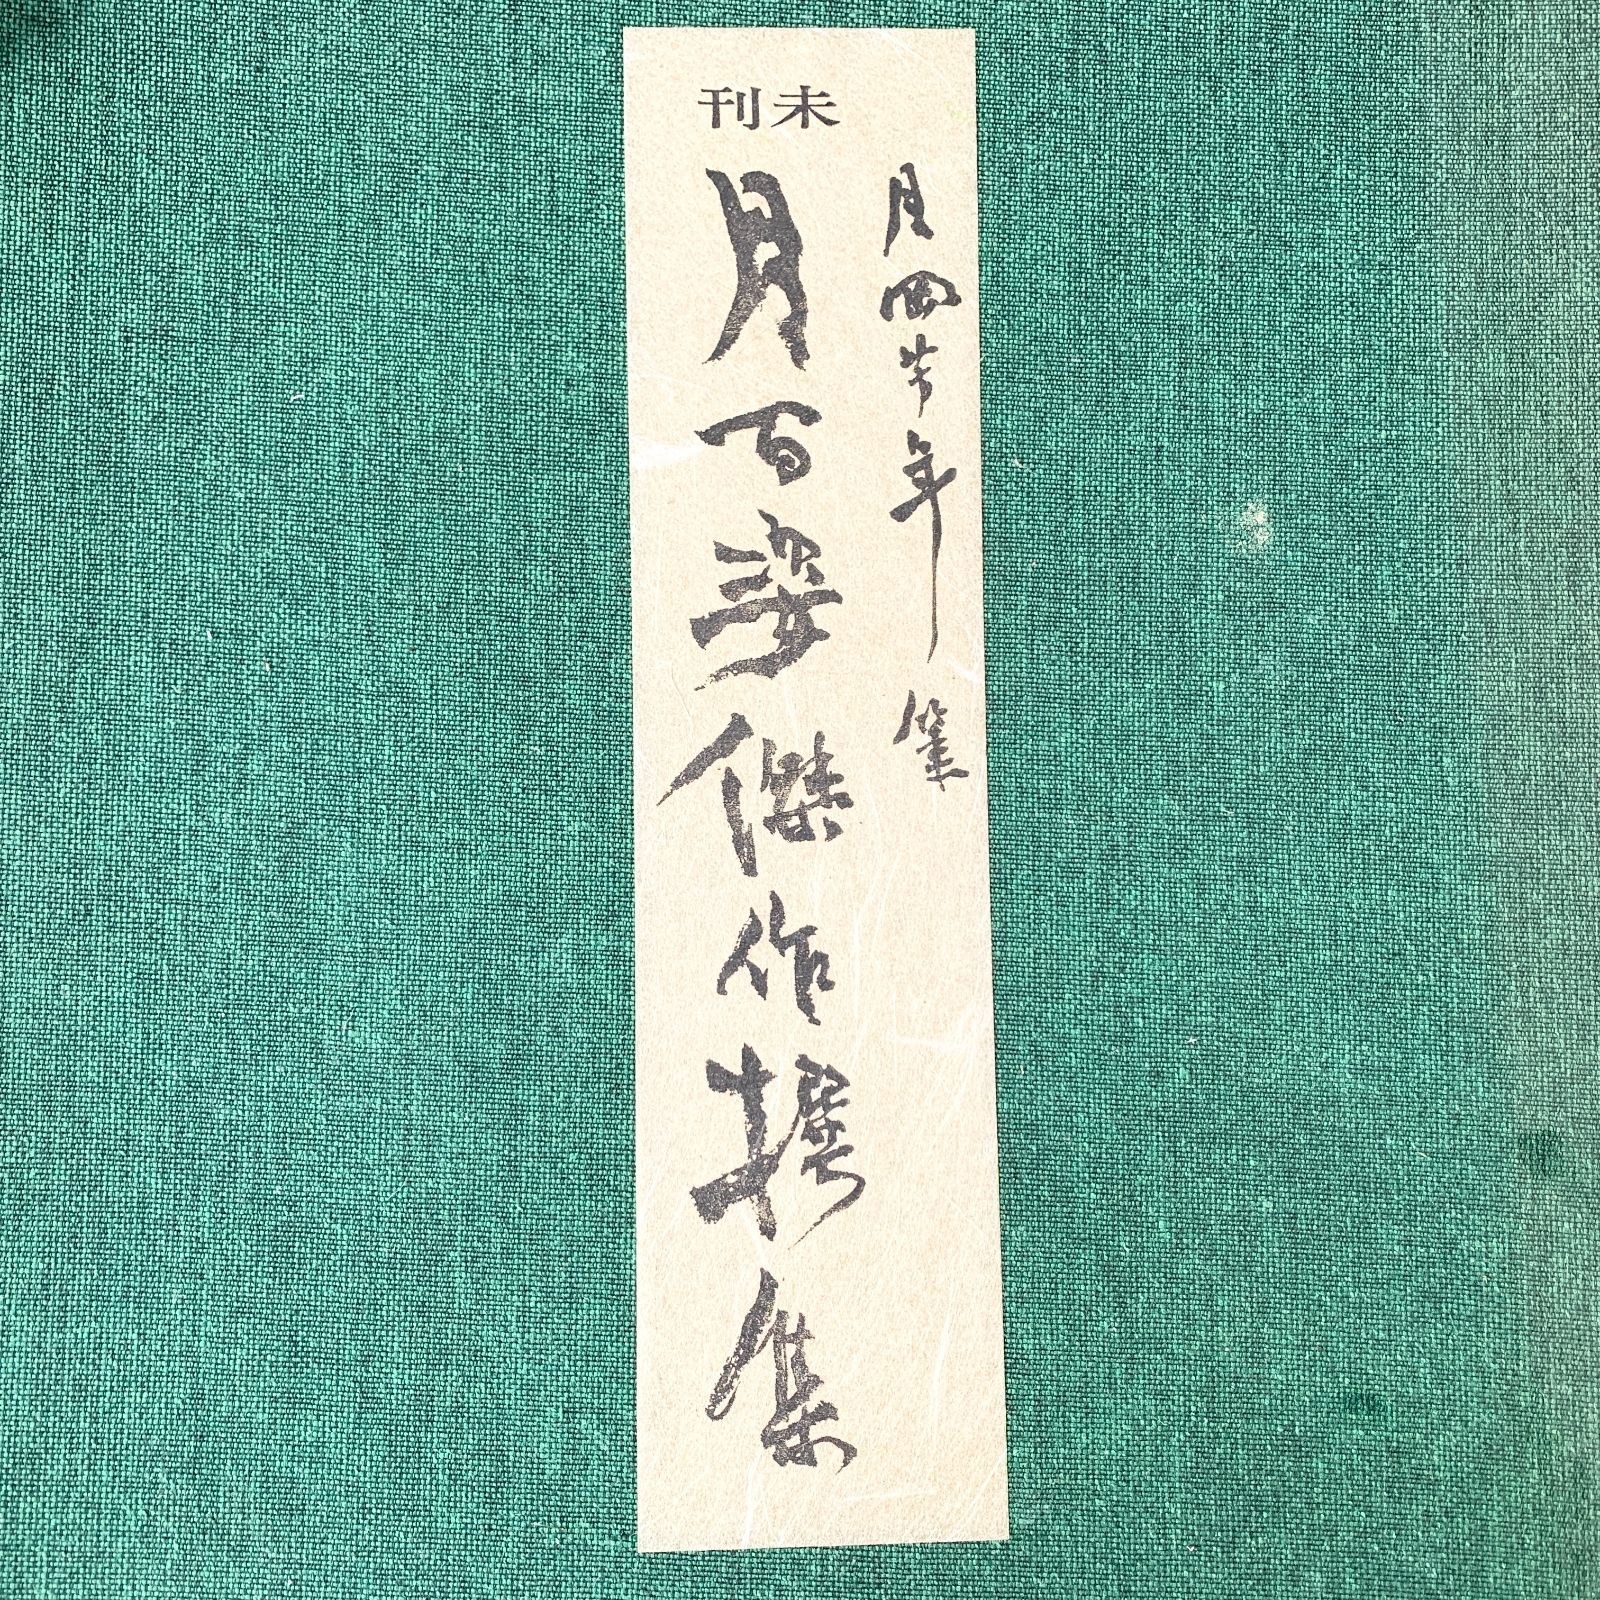 未刊
月岡芳年筆
月百姿傑作撰集